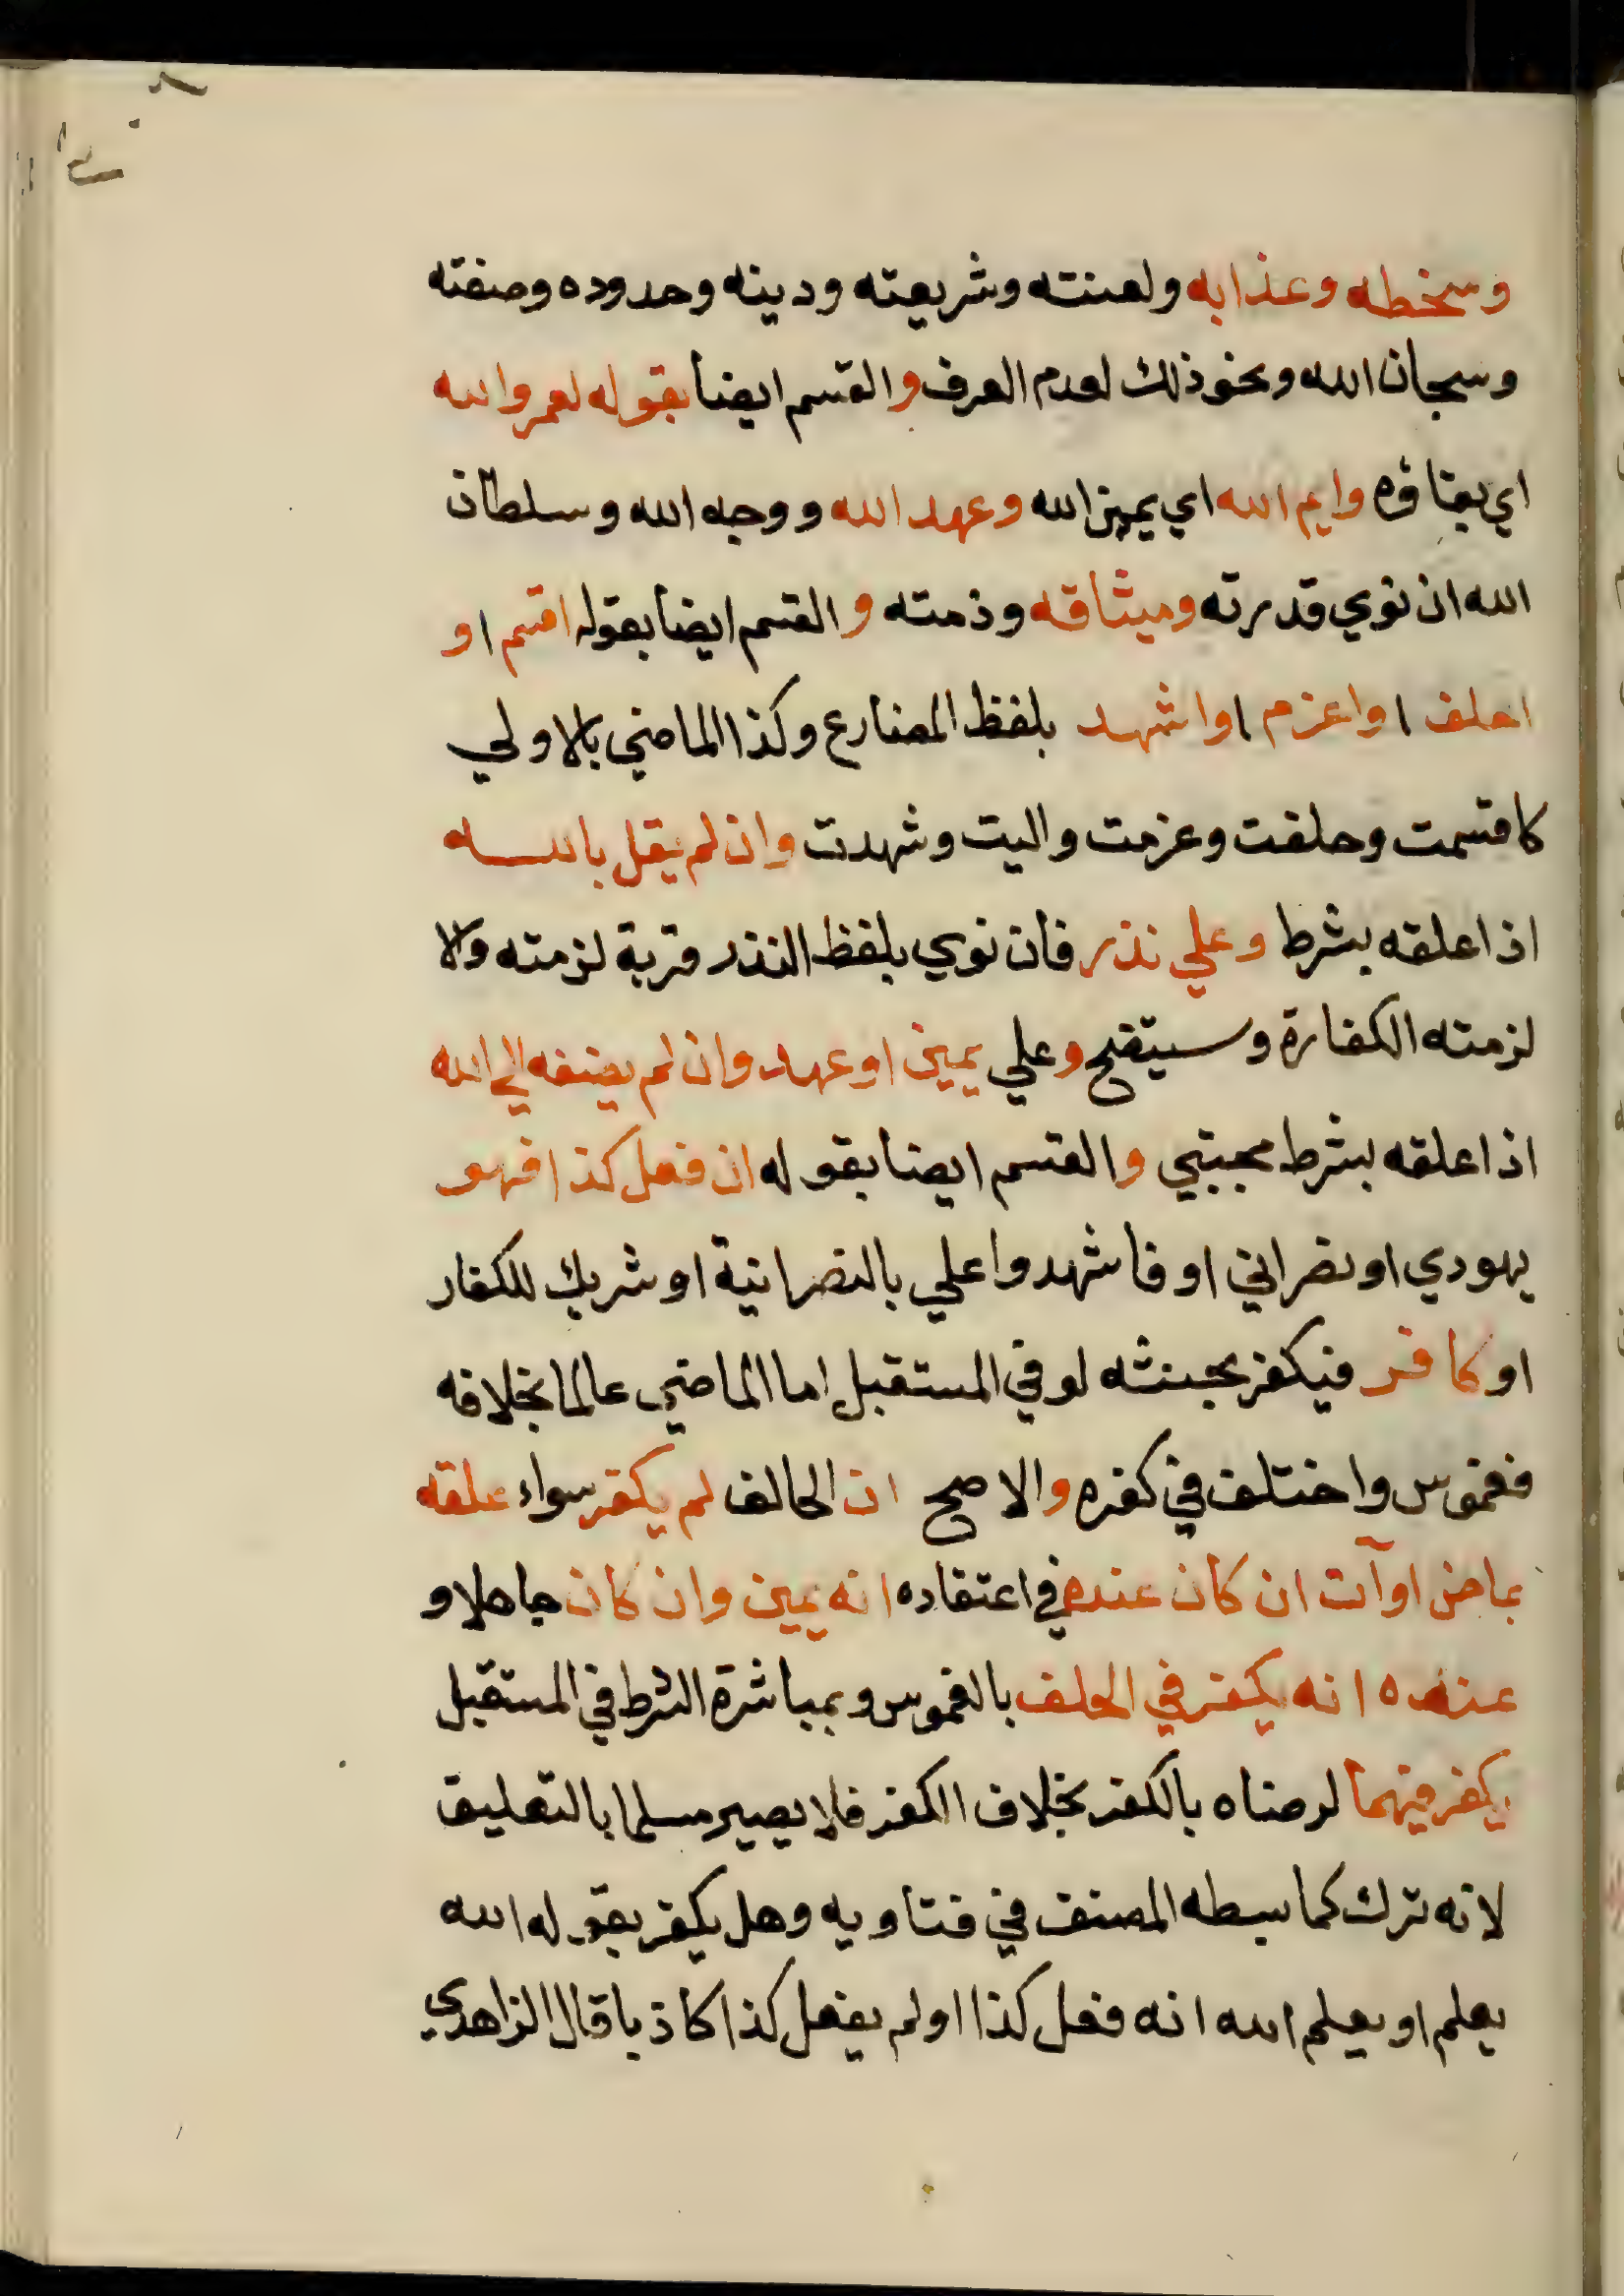 وسخطه وعذابه ولعنته وشريعته ودينه وحدوده وصفته
وسبحان الله ونحو ذلك لعدم العرف والقسم ايضا بقوله لعمر والله
اي بقاؤه وايم الله اي يمين الله وعهد الله ووجه الله وسلطان
الله ان نوي قدرته وميثاقه وذمته والقسم ايضا بقوله اقسم او
احلف او اعزم او اشهد بلفظ المضارع وكذا الماضي بالاولي
كاقسمت وحلفت وعزمت واليت وشهدت وان لم يقل بالله
اذا علقه بشرط وعلي نذر فان نوي بلفظ النذر قربة لزمته والا
لزمته الكفارة وسيتضح وعلي يمين او عهد وان لم يضفه الي الله
اذا علقه بشرط مجتبي والقسم ايضا بقوله ان فعل كذا فهو
يهودي او نصراني او فاشهدوا علي بالنصرانية او شريك للكفار
او كافر فيكفر بحنثه لو في المستقبل اما الماضي عالما بخلافه
فغموس واختلف في كفره والاصح ان الحالف لم يكفر سواء علقه
بماض او آت ان كان عنده في اعتقاده انه يمين وان كان جاهلا و
عنده انه يكفر في الحلف بالغموس وبمباشرة الشرط في المستقبل
يكفر فيهما لرضاه بالكفر بخلاف الكفر فلا يصير مسلما بالتعليق
لانه ترك كما بسطه المصنف في فتاويه وهل يكفر بقوله الله
يعلم او يعلم الله انه فعل كذا او لم يفعل كذا كاذبا قال الزاهدي